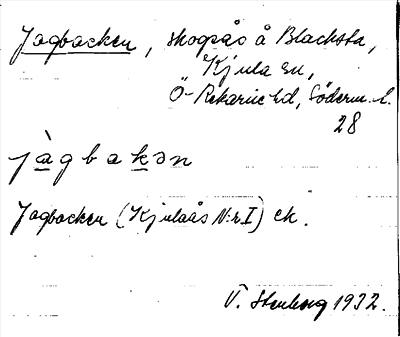 Jagbacken, skogsås å Blacksta,
Kjula sn,
Ö-Rekarne hd, Söderm. l.
28
jàgbakən
Jagbacken (Kjulaås N:r I) ek.
V. Stenberg 1932.